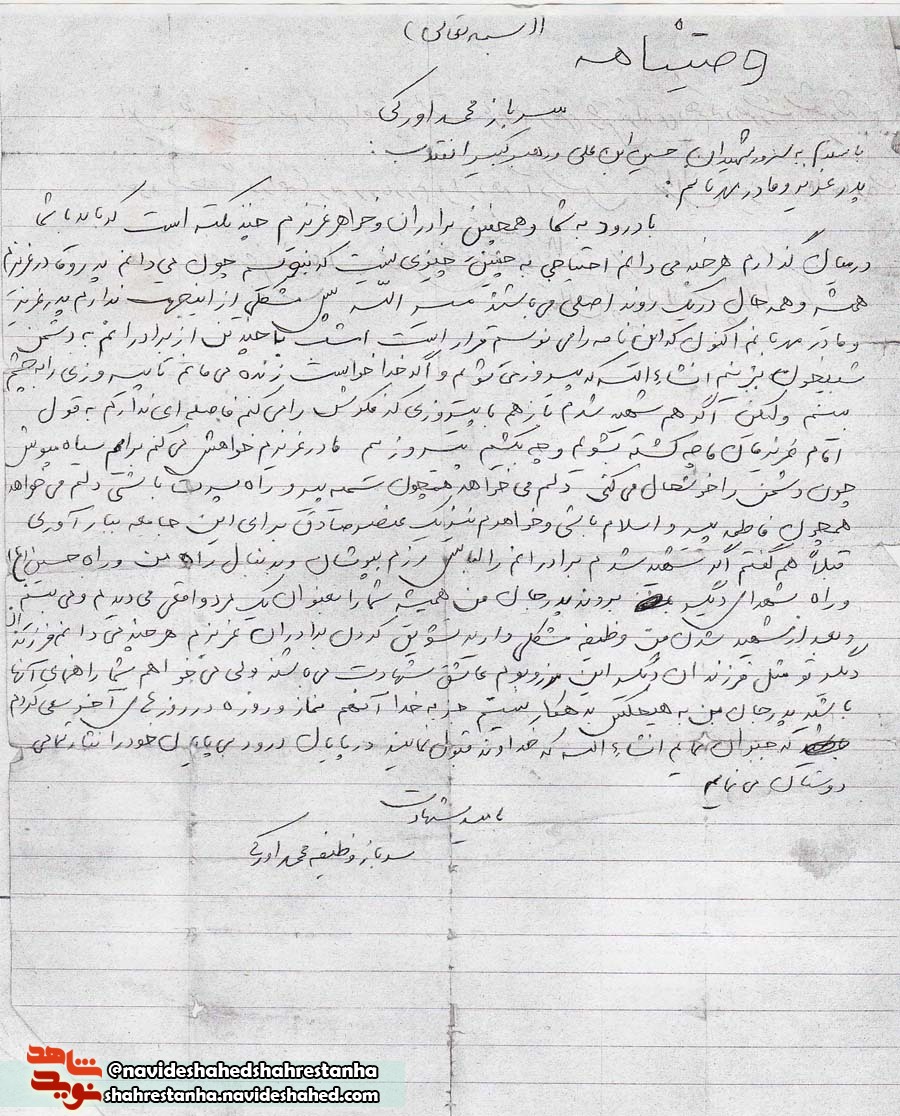 (بسمه تعالی)
وصیتنامه
سرباز محمد اورکی
با سلام به سرور شهیدان حسین ابن علی و رهبر کبیر انقلاب.
پدر عزیز و مادر مهربانم:
با درود به شما و همچنین برادران و خواهر عزیزم چند نکته است که باید با شما
در میان گذارم هر چند می دانم احتیاجی به چنین چیزی نیست که بنویسم چون می دانم پدر و مادر عزیزم
همیشه و همه حال در یک روند اصلی می باشند انشاء الله پس مشکلی از اینجهت ندارم پدر عزیز
و مادر مهربانم اکنون که این نامه را می نویسم قرار است با چندین از برادرانم به دشمن
شبیخون بزنیم انشاء الله که پیروز می شویم و اگر خدا خواست زنده می مانم تا پیروزی را به چشم
ببینم ولیکن اگر هم شهید شدم باز هم با پیروزی که فکرش را می کنم فاصله ای ندارم به قول
امام عزیزمان ما چه کشته بشویم و چه بکشیم پیروزیم مادر عزیزم خواهش می کنم برایم سیاه مپوش
چون دشمن را خوشحال می کنی دلم می خواهد همچون سمیه پیرو راه پسرت باشی دلم می خواهد
همچون فاطمه پیرو اسلام باشی و خواهرم نیز یک عنصر صادق برای این جامعه ببار آوری
قبلاً هم گفتم اگر شهید شدم برادرانم را لباس رزم بپوشان و بدنبال راه من و راه حسین (ع)
و راه شهدای دیگر بروند پدر جان من همیشه شما را بعنوان یک مرد واقعی می دیدم و می بینم
و بعد از شهید شدن من وظیفه مشکلی دارید تشویق کردن برادران عزیزم هر چند می دانم فرزندان
دیگر تو مثل فرزندان دیگر این مرز و بوم عاشق شهادت می باشند ولی می خواهم شما راهنمای آنها
باشید پدر جان من به هیچکس بدهکار نیستم جز به خدا آنهم نماز و روزه در روزهای آخر سعی کردم
که جبران نمایم انشاء الله که خداوند قبول نماید در پایان درود بی پایان خود را نثار تمامی
دوستان می نمایم
بامید شهادت
سرباز وظیفه محمد اورکی
شاهد
نوید
@navideshahedshahrestanha
shahrestanha.navideshahed.com